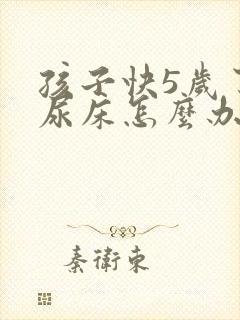 孩子快5歲
尿床怎麼办
秦衛東